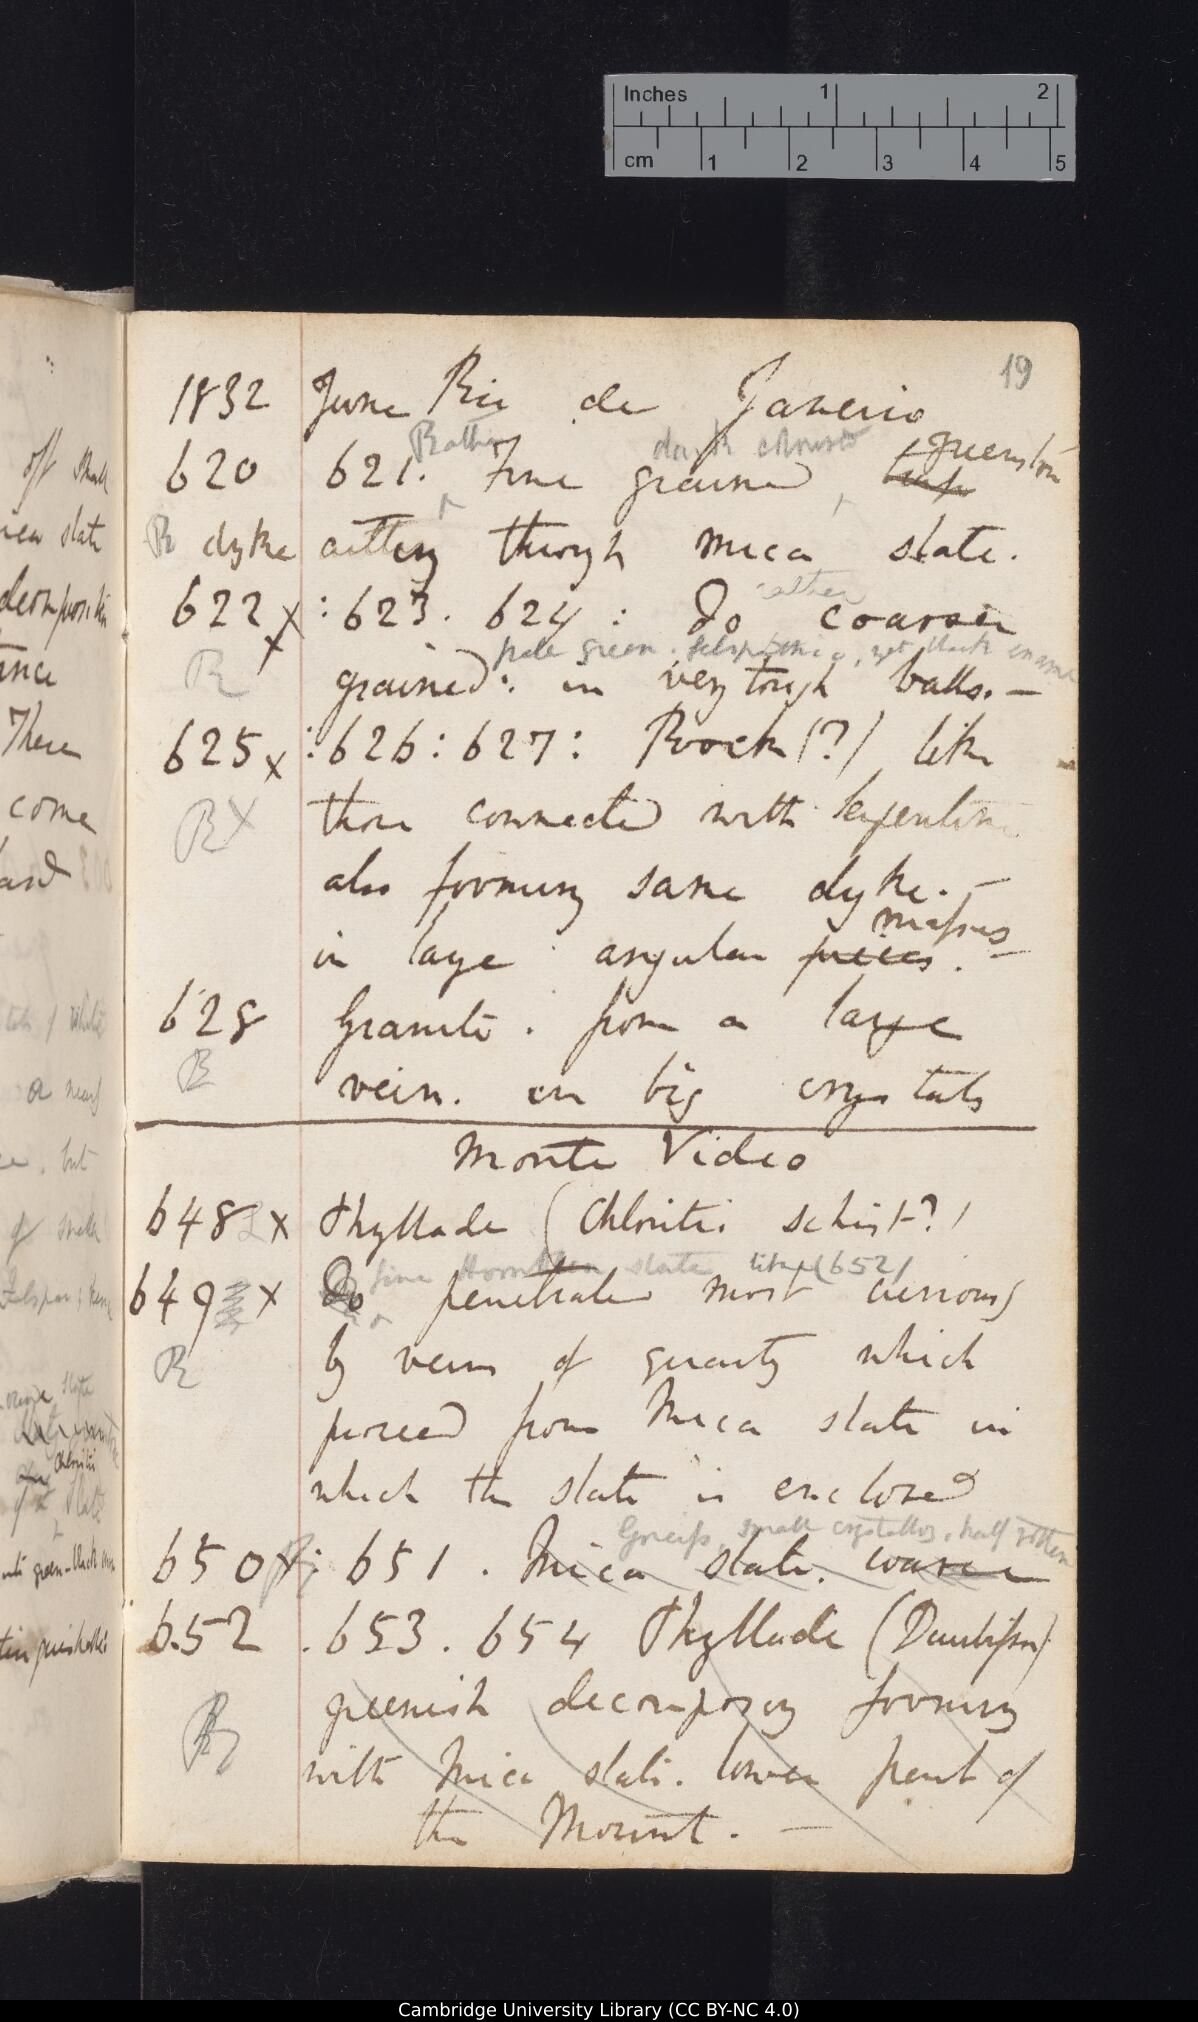 Inches 1 2
cm 1 2 3 4 5
19
1832 June Rio de Janeiro
Rather dark greenstone
620 621. Fine grained trap
R dyke cutting through mica slate.
rather
622 x : 623. 624 : Do coarser
pale green. felspathic, yet black
R grained: in very tough balls. —
625 x : 626 : 627 : Rock (?) like
R x those connected with Serpentine
also forming same dyke. —
masses
in large angular pieces. —
628 Granite. from a large
R vein. in big crystals
Monte Video
648 x Phyllade (Chloritic schist?)
fine slate like (652)
649 x Do penetrated most curiously
R by veins of quartz which
proceed from Mica slate in
which the slate is enclosed
Gneiss, small crystals, half rotten
650 x : 651. Mica slate. coarse
652 . 653. 654 Phyllade (Daubisson)
R greenish decomposing forming
with Mica slate. lower part of
the Mount. —
off small
mica slate
decomposition
There
come
and
a nearly
but
of small
slate
Chloritic
slate
green-black
Cambridge University Library (CC BY-NC 4.0)